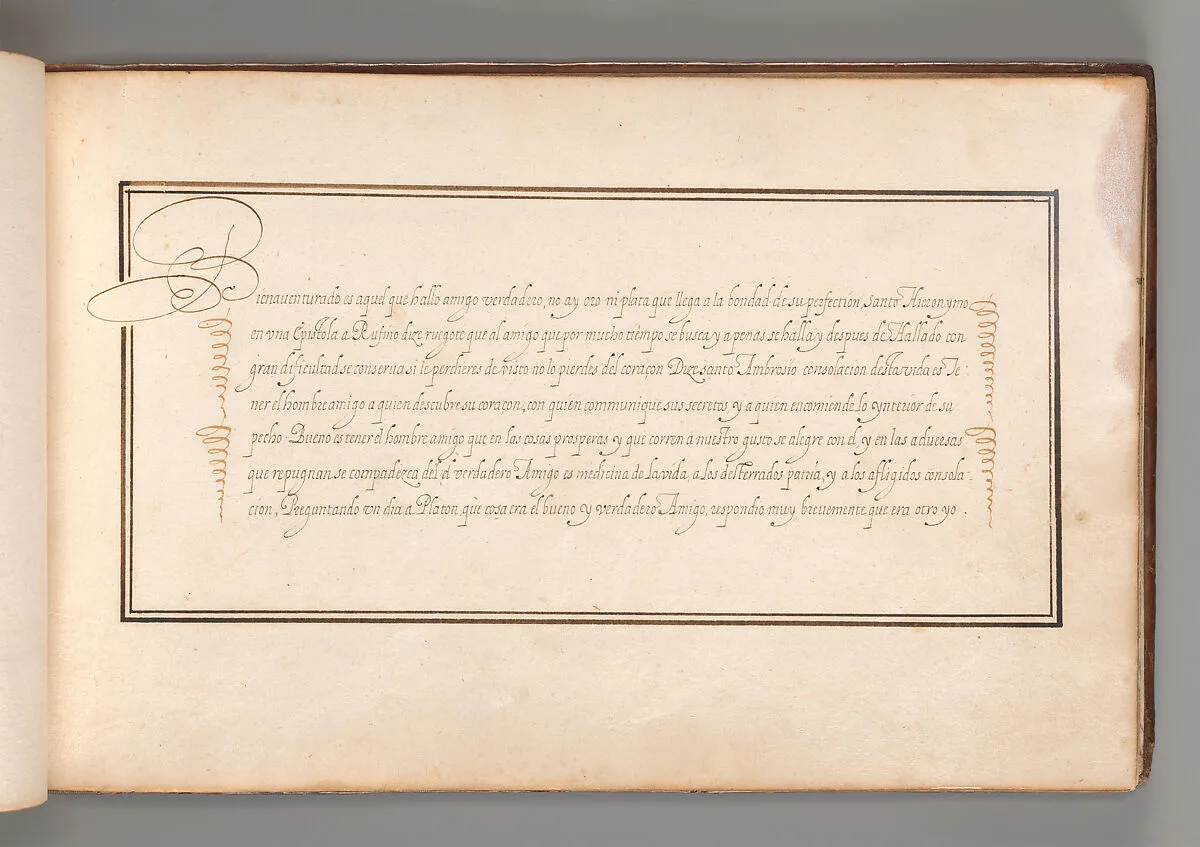 Bienauenturado es aquel que hallo amigo verdadero, no ay oro ni plata que llega a la bondad de su perfectión, Santo Hieronymo
en vna Epistola a Rufino dize ruegote que al amigo que por mucho tiempo se busca y apenas se halla y despues de Hallado con
gran dificultad se conserua si le perdieres de visto no lo pierdes del coraçon Dize santo Ambrosio consolacion desta vida es Te
ner el hombre amigo a quien descubre su coraçon, con quien communique sus secretos, y a quien encomiende lo ynterior de su
pecho. Bueno es tener el hombre amigo, que en las cosas prosperas y que corren a nuestro gusto se alegre con el, y en las aduersas
que repugnan se compadezca del el verdadero Amigo es medicina de la vida, a los desterrados patria, y a los afligidos consola-
ción, Preguntando vn dia a Platon, que cosa era el bueno y verdadero Amigo, respondio muy breuemente que era otro yo.